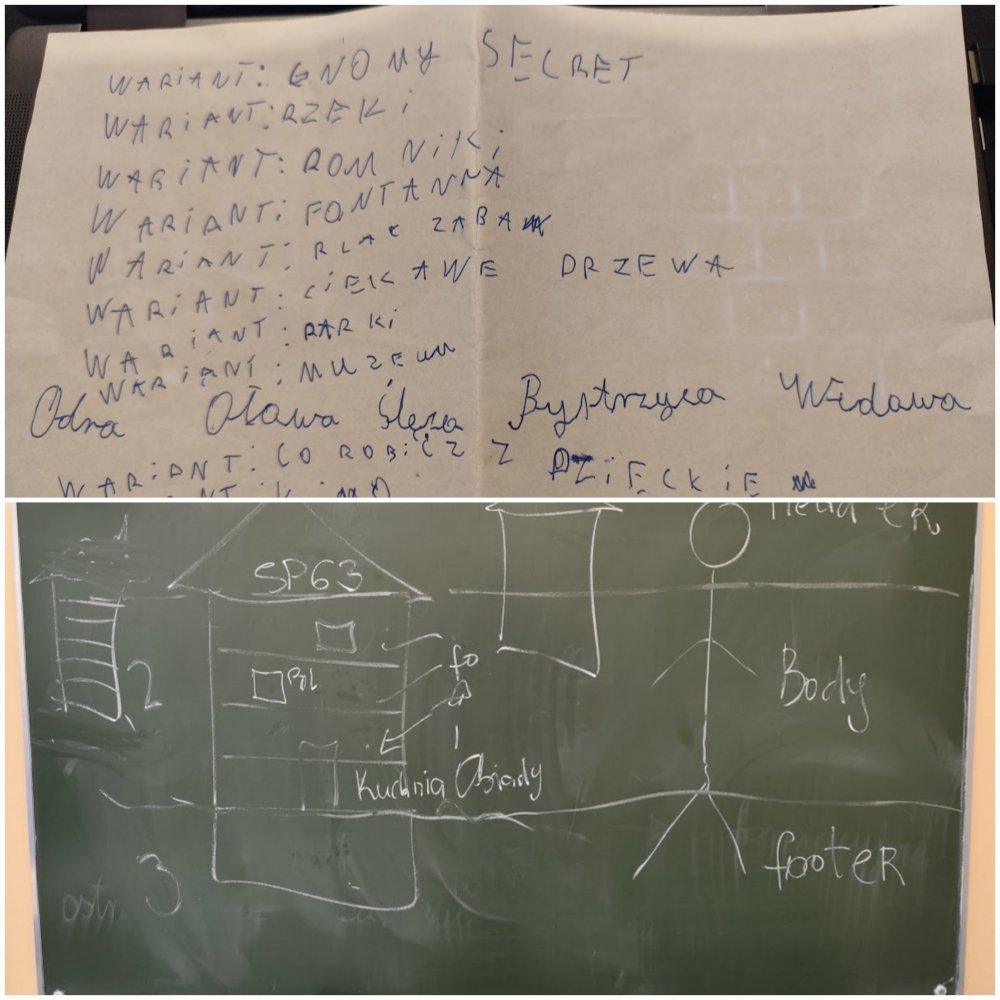 WARiANT: GNOMY SECRET
WARiANT: RZEKi
WARiANT: POMNiKi
WARiANT: FONTANNA
WARiANT: PLAC ZABAW
WARiANT: CiEKAWE DRZEWA
WARiANT: PARKi
WARiANT: MUZEUM
Odra Oława Ślęza Bystrzyca Widawa
WARiANT: CO ROBiĆ Z Z DZiECKiEM
SP63
fo
2
Body
Kuchnia Obiady
3
footER